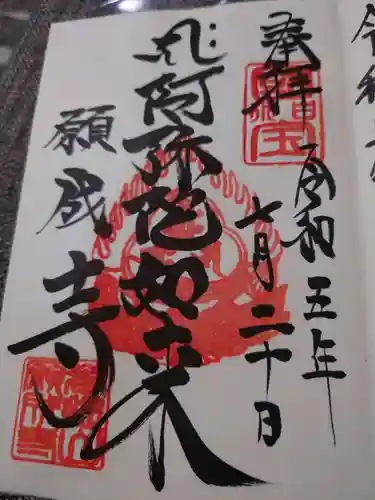 令和
奉拝
令和五年
七月二十日
阿弥陀如来
願成寺